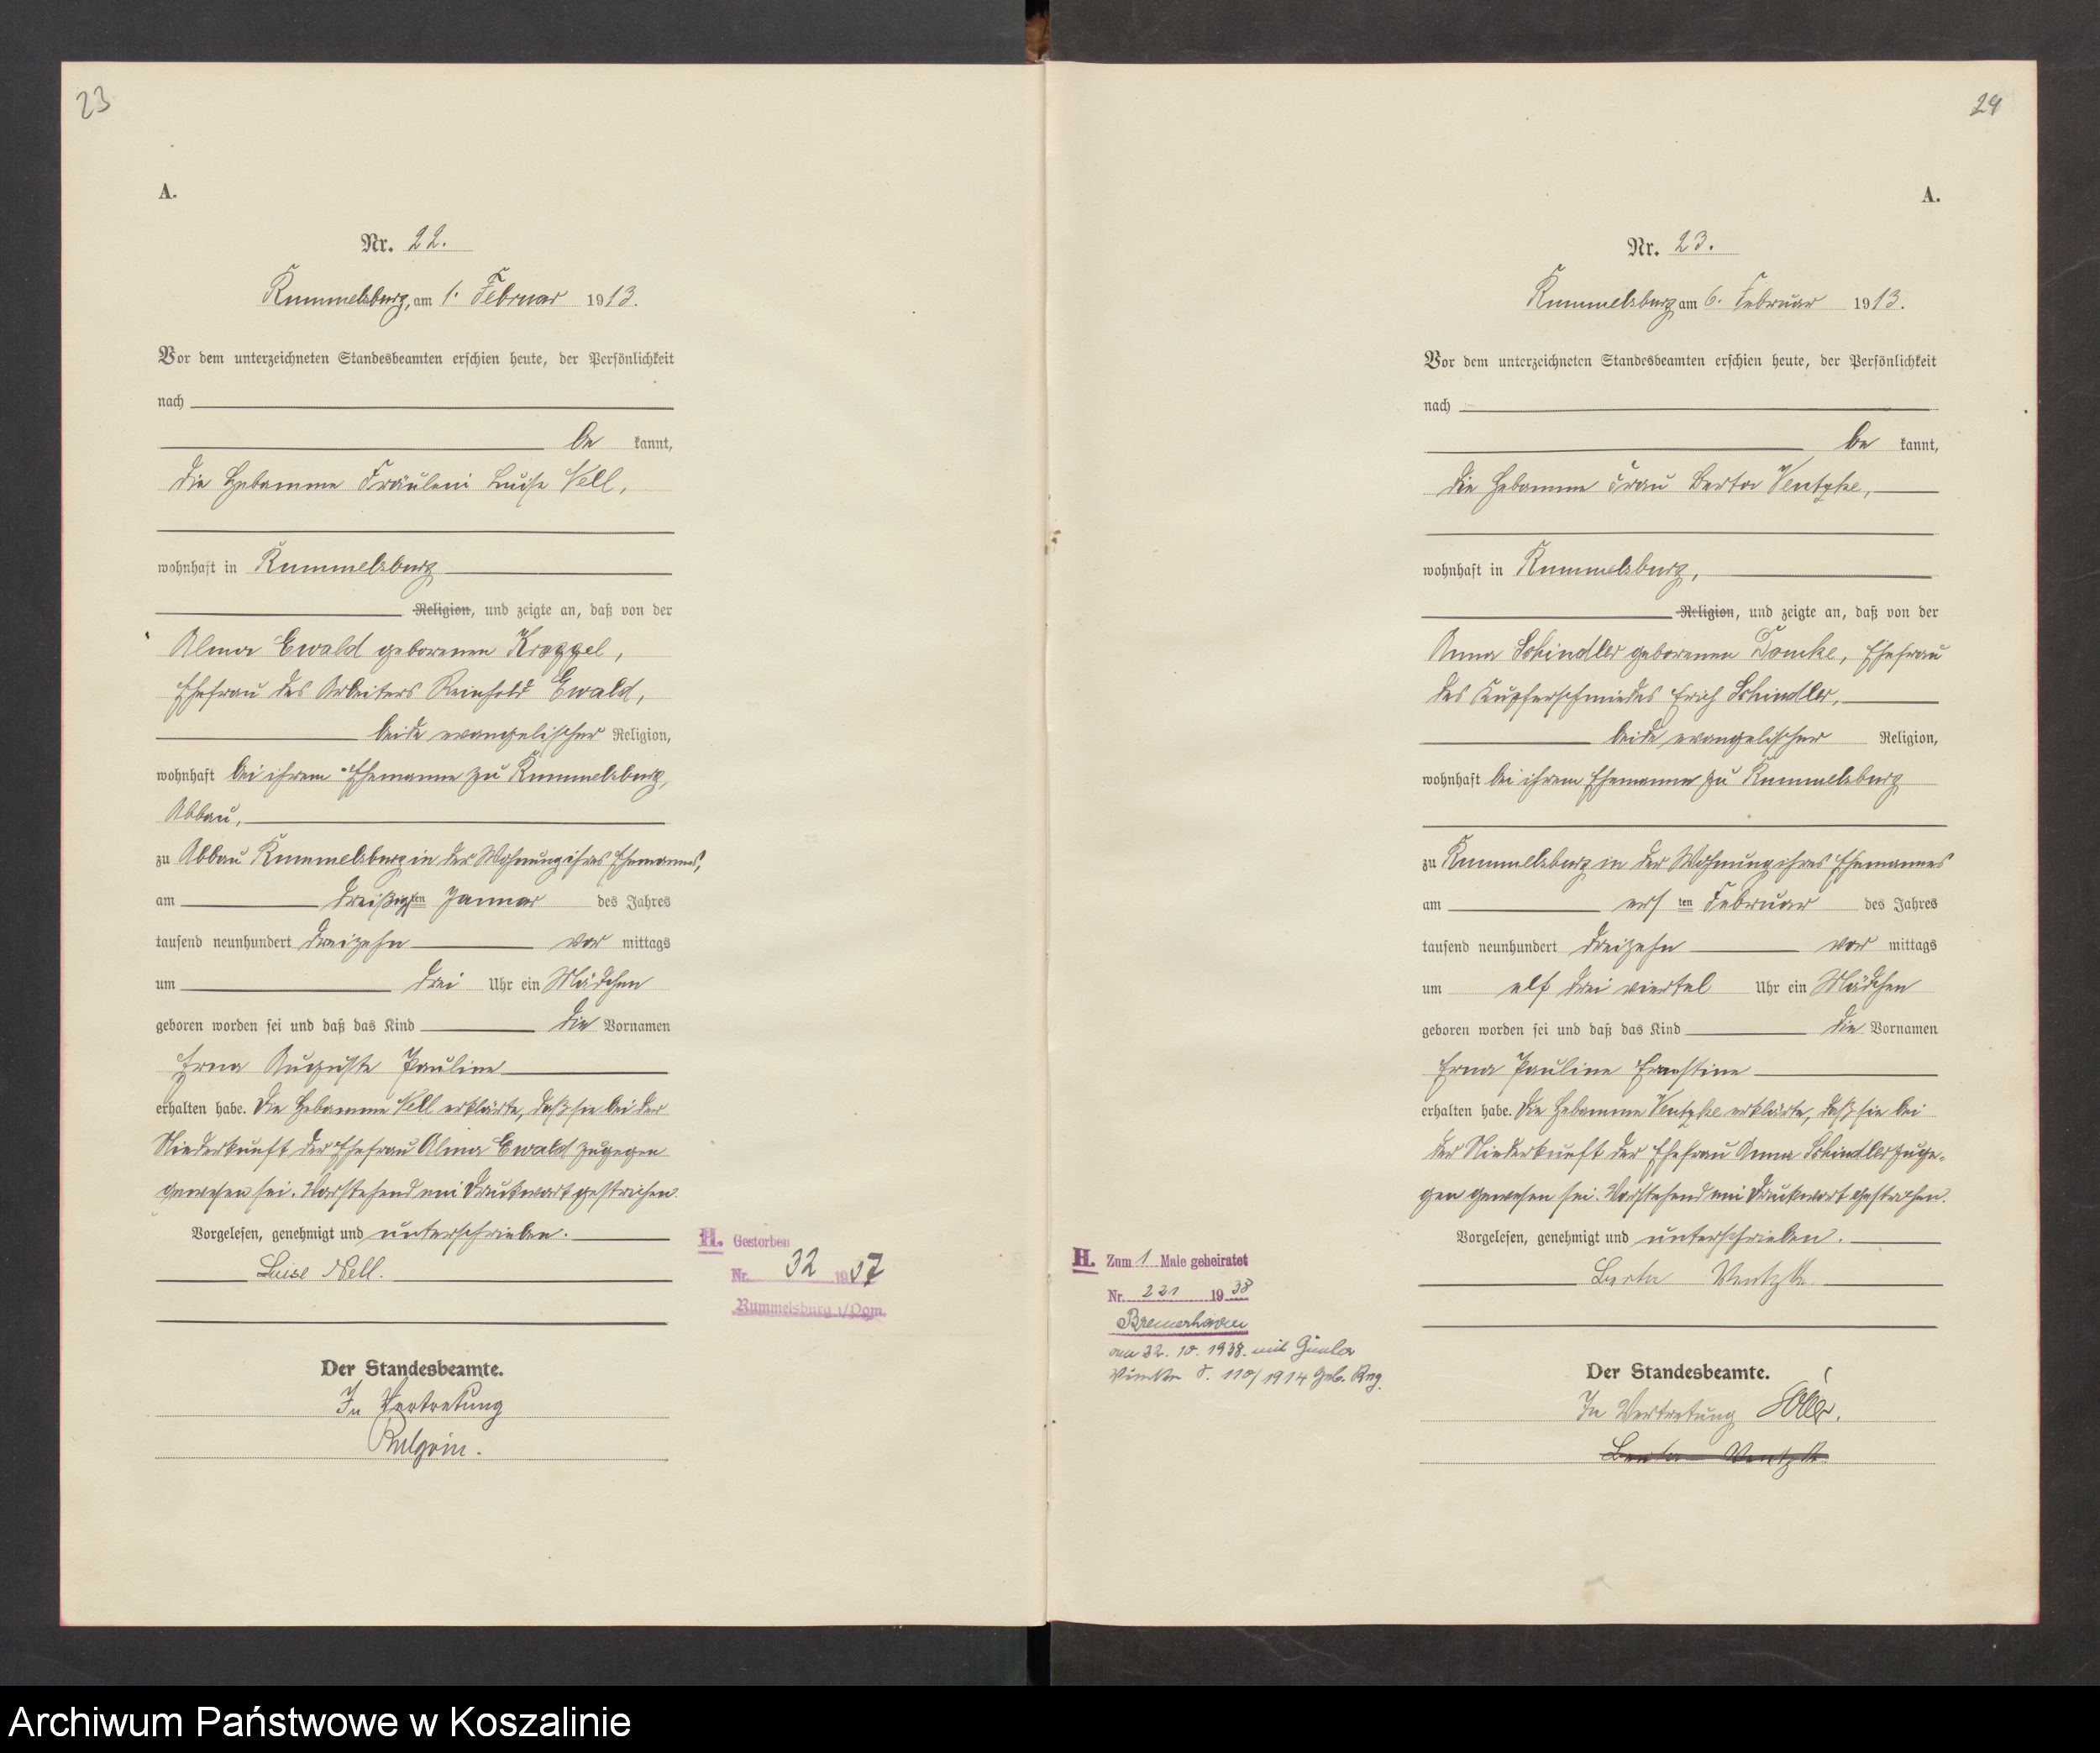 23
A.
Nr. 22.
Rummelsburg, am 1. Februar 1913.
Vor dem unterzeichneten Standesbeamten erschien heute, der Persönlichkeit
nach
be kannt,
die Hebamme Fräulein Luise Nell,
wohnhaft in Rummelsburg
Religion, und zeigte an, daß von der
Alma Ewald geborenen Kroggel,
Ehefrau des Arbeiters Reinhold Ewald,
beide evangelischer Religion,
wohnhaft bei ihrem Ehemanne zu Rummelsburg,
Abbau,
zu Abbau Rummelsburg in der Wohnung ihres Ehemannes,
am dreißigsten Januar des Jahres
tausend neunhundert dreizehn vor mittags
um drei Uhr ein Mädchen
geboren worden sei und daß das Kind die Vornamen
Erna Auguste Pauline
erhalten habe. Die Hebamme Nell erklärte, daß sie bei der
Niederkunft der Ehefrau Alma Ewald zugegen
gewesen sei. Vorstehend ein Druckwort gestrichen.
Vorgelesen, genehmigt und unterschrieben.
Luise Nell.
Der Standesbeamte.
In Vertretung
H. Gestorben
Nr. 32 1937
Rummelsburg i/Pom.
24
A.
Nr. 23.
Rummelsburg am 6. Februar 1913.
Vor dem unterzeichneten Standesbeamten erschien heute, der Persönlichkeit
nach
be kannt,
die Hebamme Frau Berta Ventzke,
wohnhaft in Rummelsburg,
Religion, und zeigte an, daß von der
Anna Schindler geborenen Domke, Ehefrau
des Kupferschmiedes Erich Schindler,
beide evangelischer Religion,
wohnhaft bei ihrem Ehemanne zu Rummelsburg
zu Rummelsburg in der Wohnung ihres Ehemannes
am ersten Februar des Jahres
tausend neunhundert dreizehn vor mittags
um elf drei viertel Uhr ein Mädchen
geboren worden sei und daß das Kind die Vornamen
Erna Pauline Ernestine
erhalten habe. Die Hebamme Ventzke erklärte, daß sie bei
der Niederkunft der Ehefrau Anna Schindler zuge-
gen gewesen sei. Vorstehend ein Druckwort gestrichen.
Vorgelesen, genehmigt und unterschrieben.
Berta Ventzke
Der Standesbeamte.
In Vertretung
Berta Ventzke
H. Zum 1 Male geheiratet
Nr. 221 1938
Bremerhaven
am 22. 10. 1938. mit
110/1914 Geb. Reg.
Archiwum Państwowe w Koszalinie